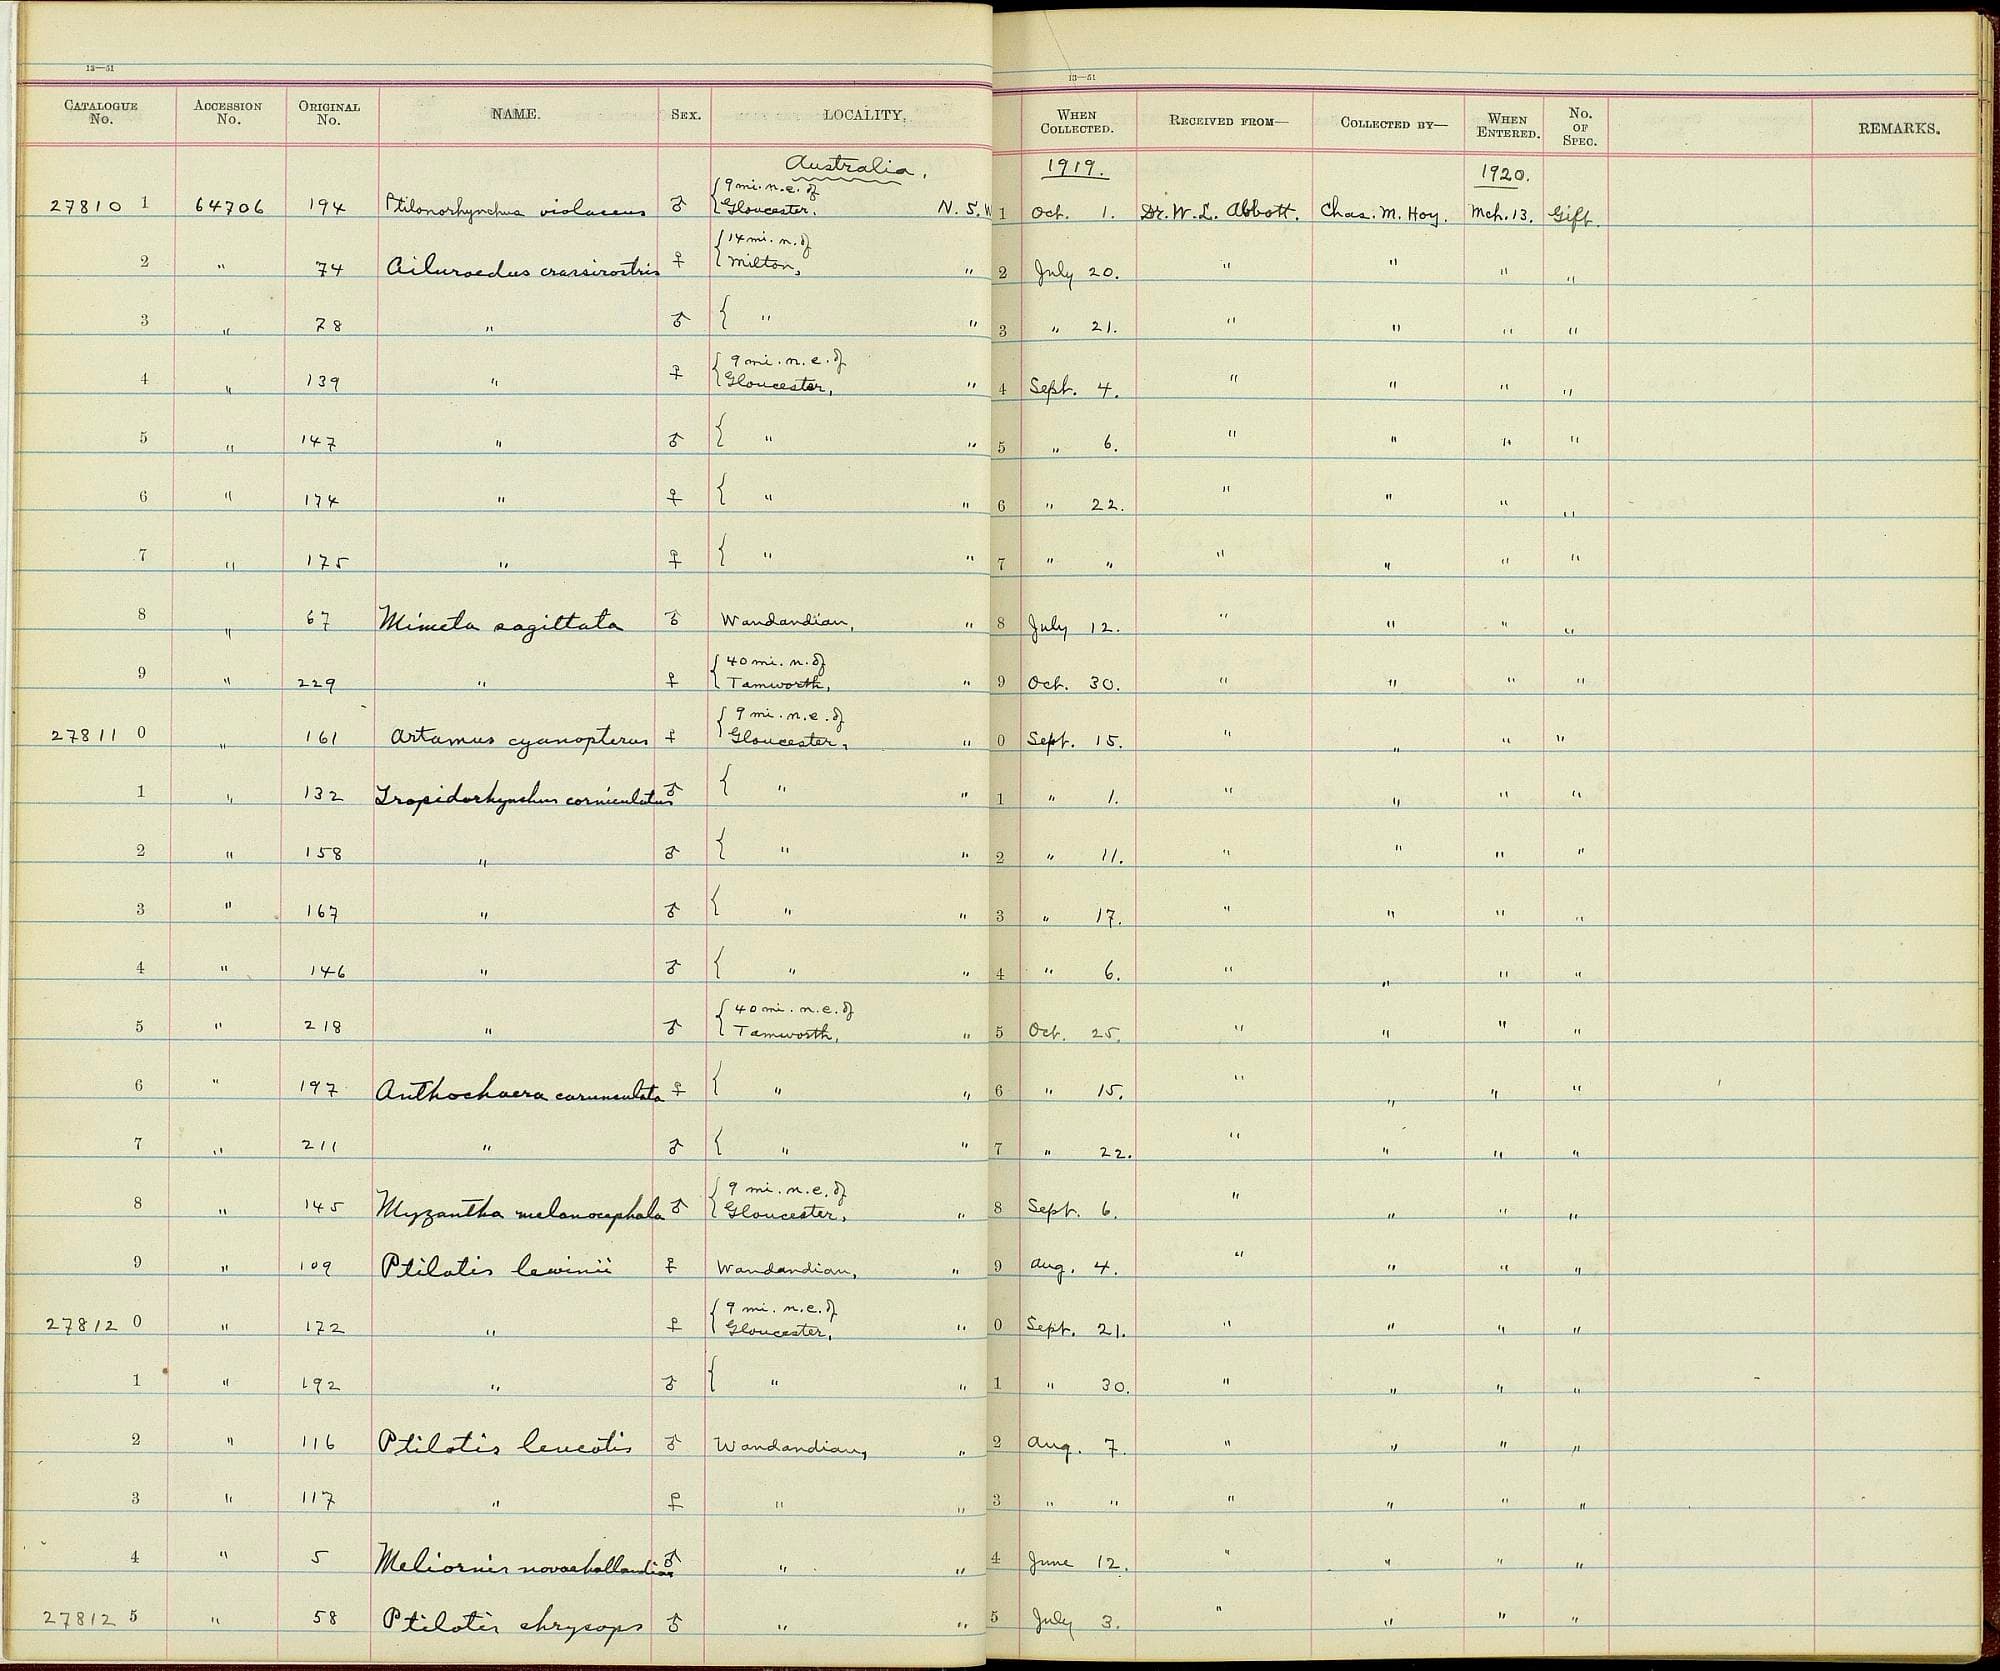 13—51 13—51
CATALOGUE No. ACCESSION No. ORIGINAL No. NAME. SEX. LOCALITY. WHEN COLLECTED. RECEIVED FROM— COLLECTED BY— WHEN ENTERED. No. OF SPEC. REMARKS.
Australia. 1919. 1920.
27810 1 64706 194 Ptilonorhynchus violaceus ♂ { 9 mi. n.e. of Gloucester, N. S. W 1 Oct. 1. Dr. W. L. Abbott. Chas. M. Hoy. Mch. 13. Gift.
2 " 74 Ailuroedus crassirostris ♀ { 14 mi. n. of Milton, " 2 July 20. " " " "
3 " 78 " ♂ { " " 3 " 21. " " " "
4 " 139 " ♀ { 9 mi. n. e. of Gloucester, " 4 Sept. 4. " " " "
5 " 147 " ♂ { " " 5 " 6. " " " "
6 " 174 " ♀ { " " 6 " 22. " " " "
7 " 175 " ♀ { " " 7 " " " " " "
8 " 67 Mimeta sagittata ♂ Wandandian, " 8 July 12. " " " "
9 " 229 " ♀ { 40 mi. n. of Tamworth, " 9 Oct. 30. " " " "
27811 0 " 161 Artamus cyanopterus ♀ { 9 mi. n.e. of Gloucester, " 0 Sept. 15. " " " "
1 " 132 Tropidorhynchus corniculatus ♂ { " " 1 " 1. " " " "
2 " 158 " ♂ { " " 2 " 11. " " " "
3 " 167 " ♂ { " " 3 " 17. " " " "
4 " 146 " ♂ { " " 4 " 6. " " " "
5 " 218 " ♂ { 40 mi. n.e. of Tamworth, " 5 Oct. 25. " " " "
6 " 197 Anthochaera carunculata ♀ { " " 6 " 15. " " " "
7 " 211 " ♂ { " " 7 " 22. " " " "
8 " 145 Myzantha melanocephala ♂ { 9 mi. n.e. of Gloucester, " 8 Sept. 6. " " " "
9 " 109 Ptilotis lewinii ♀ Wandandian, " 9 Aug. 4. " " " "
27812 0 " 172 " ♀ { 9 mi. n.e. of Gloucester, " 0 Sept. 21. " " " "
1 " 192 " ♂ { " " 1 " 30. " " " "
2 " 116 Ptilotis leucotis ♂ Wandandian, " 2 Aug. 7. " " " "
3 " 117 " ♀ " " 3 " " " " " "
4 " 5 Meliornis novaehollandiae ♂ " " 4 June 12. " " " "
27812 5 " 58 Ptilotis chrysops ♂ " " 5 July 3. " " " "